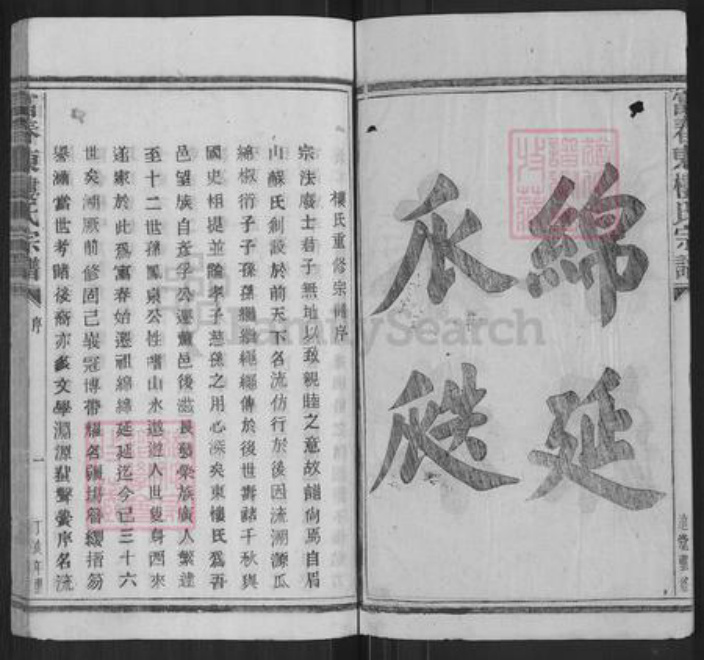 綿延
瓜瓞
富春東樓氏宗譜
樓氏重修宗譜序
宗法廢士君子無地以致親睦之意故譜尚焉自眉
山蘇氏創設於前天下名流仿行於後因流溯源瓜
綿椒衍子子孫孫繼繼繩繩傳於後世壽諸千秋與
國史相提並論孝子慈孫之用心深矣東樓氏為吾
邑望族自彥孚公遷薰邑後滋長發榮族廣人繁達
至十二世孫鳳泉公性嗜山水遨遊人世隻身西來
遂家於此為富春始遷祖綿綿延延迄今已三十六
世矣溯厥前修固已峩冠博帶耀名疆排簪纓搢笏
譽滿當世考睹後裔亦多文學淵源蜚聲黌序名流
富春東樓氏宗譜
序
一
丁亥年重
FamilySearch